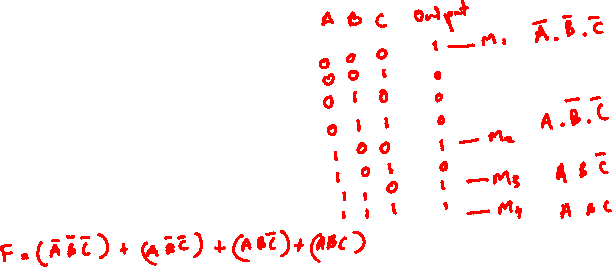 A B C Output
0 0 0 1 — M₁ A̅.B̅.C̅
0 0 1 0
0 1 0 0
0 1 1 0
1 0 0 1 — M₂ A.B̅.C̅
1 0 1 0
1 1 0 1 — M₃ A B C̅
1 1 1 1 — M₄ A B C
F = (A̅ B̅ C̅) + (A B̅ C̅) + (A B C̅) + (A B C)